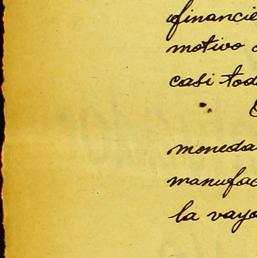 financie
motivo
casi tod
moneda
manufac
la vaya